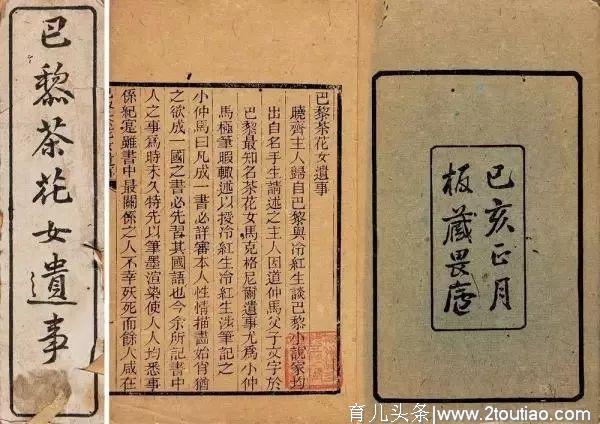 巴黎茶花女遺事
巴黎茶花女遺事
曉齋主人歸自巴黎與冷紅生談巴黎小說家均
出自名手生請述之主人因道仲馬父子文字於
巴黎最知名茶花女馬克格尼爾遺事尤爲小仲
馬極筆暇輙述以授冷紅生冷紅生涉筆記之
小仲馬曰凡成一書必詳審本人性情描畫始肖猶
之欲成一國之書必先習其國語也今余所記書中
人之事爲時未久特先以筆墨渲染使人人均悉事
係紀寔雖書中最關係之人不幸殀死而餘人咸在
己亥正月
板藏畏廬
育儿头条/www.2toutiao.com